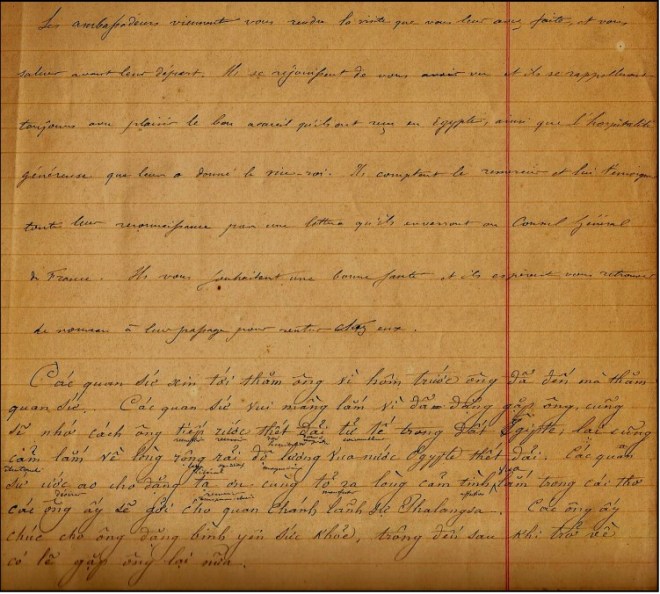 Les ambassadeurs viennent vous rendre la visite que vous leur avez faite, et vous
saluer avant leur départ. Ils se réjouissent de vous avoir vu et ils se rappelleront
toujours avec plaisir le bon accueil qu'ils ont reçu en Egypte, ainsi que l'hospitalité
généreuse que leur a donné le vice-roi. Ils comptent le remercier et lui témoigner
toute leur reconnaissance par une lettre qu'ils enverront au Consul Général
de France. Ils vous souhaitent une bonne santé et ils espèrent vous retrouver
de nouveau à leur passage pour rentrer chez eux.
Các quan sứ xin tới thăm ông vì hôm trước ông đã đến mà thăm
quan sứ. Các quan sứ vui mầng lắm vì đã đặng gặp ông, cũng
sẽ nhớ cách ông tiếp rước thết đãi tử tế trong đất Égypte, lại cũng
cảm lắm về lòng rộng rãi độ lượng vua nước Égypte thết đãi. Các quan
sứ ước ao cho đặng tạ ơn cùng tỏ ra lòng cảm tình lắm trong cái thơ
các ông ấy sẽ gởi cho quan chánh lãnh sự Phalangsa. Các ông ấy
chúc cho ông đặng bình yên sức khỏe, trông đến sau khi trở về
có lẽ gặp ông lại nữa.